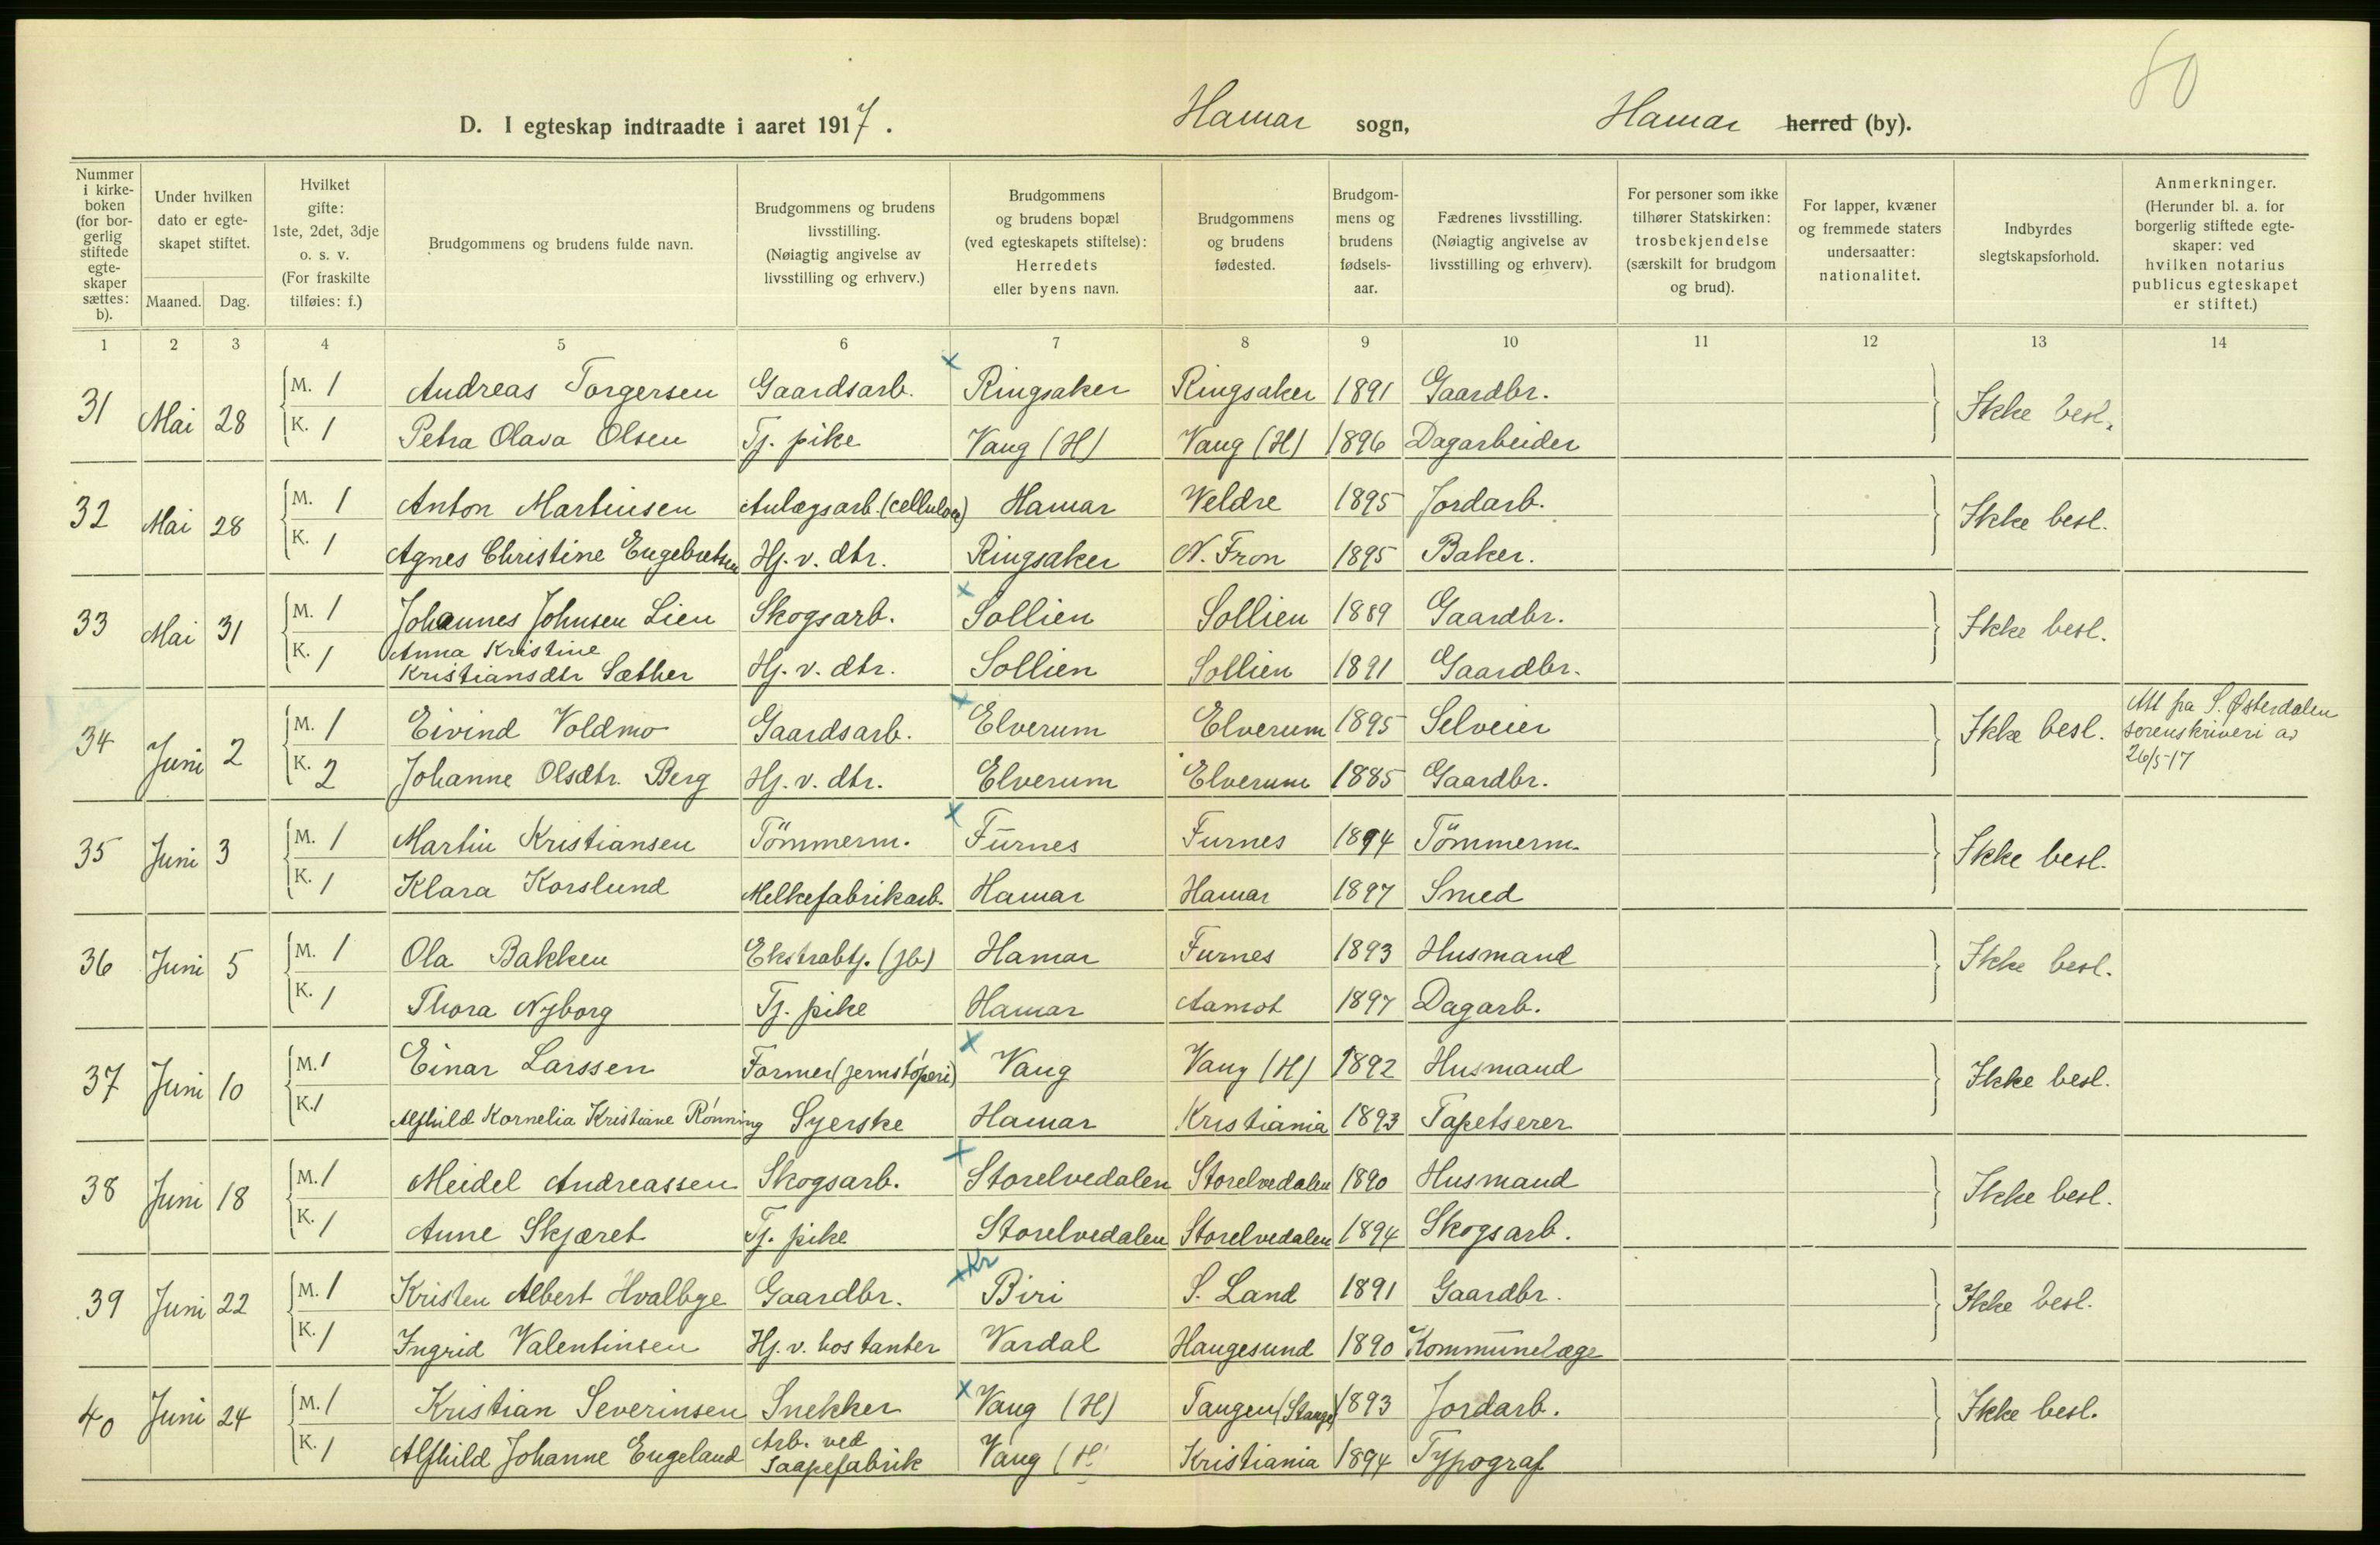 80
D. I egteskap indtraadte i aaret 1917. Hamar sogn, Hamar herred (by).
Nummer i kirkeboken (for borgerlig stiftede egteskaper sættes: b).
Under hvilken dato er egteskapet stiftet.
Maaned. Dag.
Hvilket gifte: 1ste, 2det, 3dje o. s. v. (For fraskilte tilføies: f.)
Brudgommens og brudens fulde navn.
Brudgommens og brudens livsstilling. (Nøiagtig angivelse av livsstilling og erhverv.)
Brudgommens og brudens bopæl (ved egteskapets stiftelse): Herredets eller byens navn.
Brudgommens og brudens fødested.
Brudgommens og brudens fødselsaar.
Fædrenes livsstilling. (Nøiagtig angivelse av livsstilling og erhverv).
For personer som ikke tilhører Statskirken: trosbekjendelse (særskilt for brudgom og brud).
For lapper, kvæner og fremmede staters undersaatter: nationalitet.
Indbyrdes slegtskapsforhold.
Anmerkninger. (Herunder bl. a. for borgerlig stiftede egteskaper: ved hvilken notarius publicus egteskapet er stiftet.)
1 2 3 4 5 6 7 8 9 10 11 12 13 14
31 Mai 28 M. 1 Andreas Torgersen Gaardsarb. x Ringsaker Ringsaker 1891 Gaardbr. Ikke besl.
K. 1 Petra Olava Olsen Tj. pike Vang (H) Vang (H) 1896 Dagarbeider
32 Mai 28 M. 1 Anton Martinsen Anlægsarb. (cellulose) Hamar Veldre 1895 Jordarb. Ikke besl.
K. 1 Agnes Christine Engebretsen Hj. v. dtr. Ringsaker N. Fron 1895 Baker.
33 Mai 31 M. 1 Johannes Johnsen Lien Skogsarb. x Sollien Sollien 1889 Gaardbr. Ikke besl.
K. 1 Anna Kristine
Kristiansdtr Sæther Hj. v. dtr. Sollien Sollien 1891 Gaardbr.
34 Juni 2 M. 1 Eivind Voldmo Gaardsarb. x Elverum Elverum 1895 Selveier Ikke besl. Att fra S. Østerdalen
sorenskriveri av
26/5-17
K. 2 Johanne Olsdtr. Berg Hj. v. dtr. Elverum Elverum 1885 Gaardbr.
35 Juni 3 M. 1 Martin Kristiansen Tömmerm. x Furnes Furnes 1894 Tömmerm. Ikke besl.
K. 1 Klara Korslund Melkefabrikarb. Hamar Hamar 1897 Smed
36 Juni 5 M. 1 Ola Bakken Ekstrabtj. (jb) Hamar Furnes 1893 Husmand Ikke besl.
K. 1 Thora Nyborg Tj. pike Hamar Aamot 1897 Dagarb.
37 Juni 10 M. 1 Einar Larssen Former (jernstöperi) x Vang Vang (H) 1892 Husmand Ikke besl.
K. 1 Alfhild Kornelia Kristiane Rönning Syerske Hamar Kristiania 1893 Tapetserer
38 Juni 18 M. 1 Meidel Andreassen Skogsarb. x Storelvedalen Storelvedalen 1890 Husmand Ikke besl.
K. 1 Anne Skjæret Tj. pike Storelvedalen Storelvedalen 1894 Skogsarb.
39 Juni 22 M. 1 Kristen Albert Hvalbye Gaardbr. x Kr Biri S. Land 1891 Gaardbr. Ikke besl.
K. 1 Ingrid Valentinsen Hj. v. hos tanter Vardal Haugesund 1890 Kommunelæge
40 Juni 24 M. 1 Kristian Severinsen Snekker x Vang (H) Tangen (Stange) 1893 Jordarb. Ikke besl.
K. 1 Alfhild Johanne Engeland Arb. ved
Saapefabrik Vang (H) Kristiania 1894 Typograf